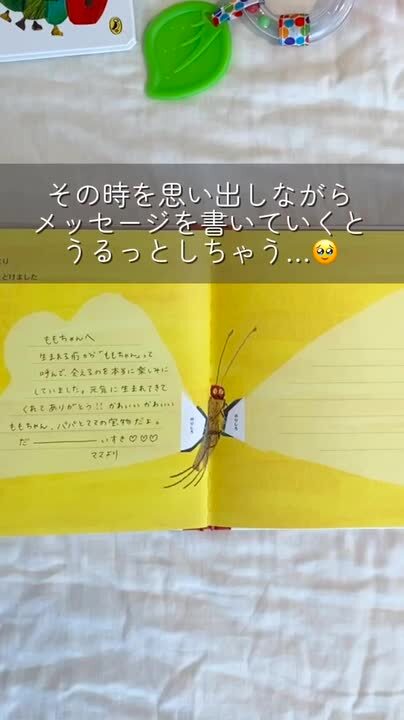 その時を思い出しながら
メッセージを書いていくと
うるっとしちゃう...🥺
より
とどけました
ももちゃんへ
生まれる前から「ももちゃん」って
呼んで、会えるのを本当に楽しみに
していました。元気に生まれてきて
くれてありがとう!! かわいいかわいい
ももちゃん、パパとママの宝物だよ。
だ――――いすき♡♡♡
ママより
のりしろ
のりしろ